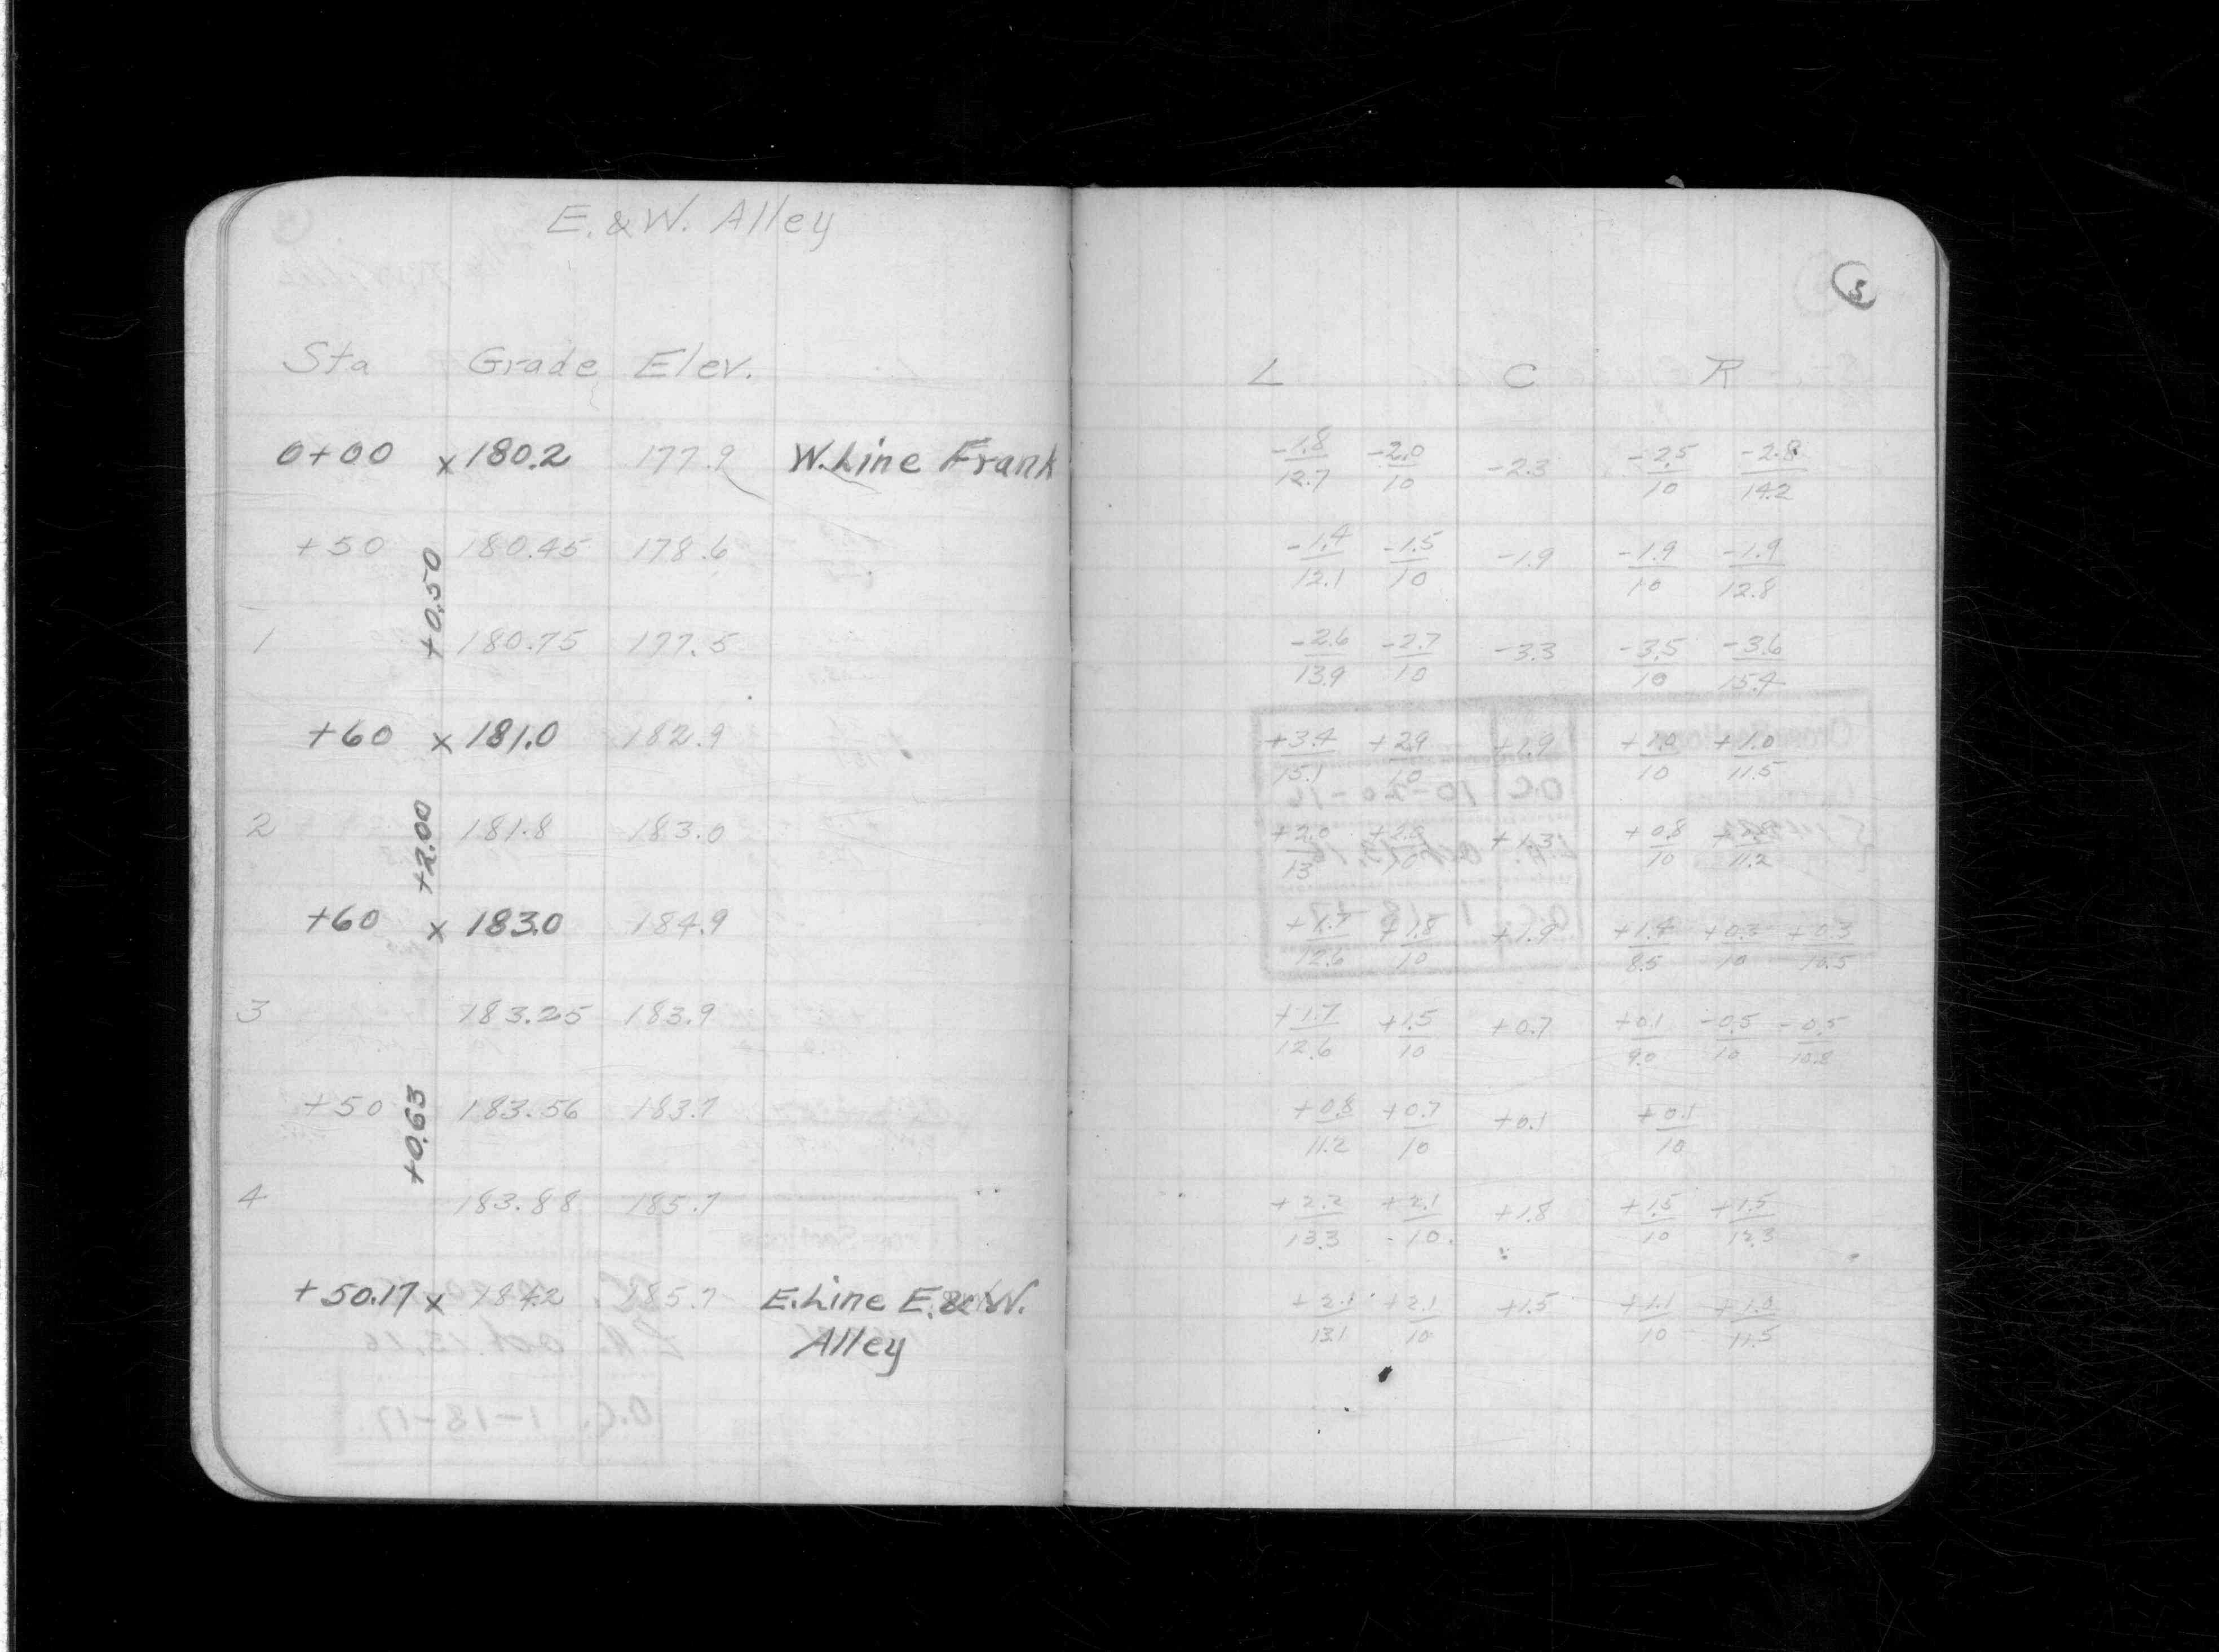 E. & W. Alley
Sta Grade Elev.
0+00 x 180.2 177.9 W. Line Frank
+50 180.45 178.6
+0.50
1 180.75 177.5
+60 x 181.0 182.9
2 181.8 183.0
+2.00
+60 x 183.0 184.9
3 183.25 183.9
+50 183.56 183.7
+0.63
4 183.88 185.7
+50.17 x 184.2 185.7 E. Line E. & W.
Alley
5
L C R
-1.8 -2.0 -2.3 -2.5 -2.8
12.7 10 10 14.2
-1.4 -1.5 -1.9 -1.9 -1.9
12.1 10 10 12.8
-2.6 -2.7 -3.3 -3.5 -3.6
13.9 10 10 15.4
+3.4 +2.9 +1.9 +1.0 +1.0
15.1 10 10 11.5
+2.0 +2.0 +1.3 +0.8
13 10 10 11.2
+1.7 +1.8 +1.9 +1.4 +0.3 +0.3
12.6 10 8.5 10 10.5
+1.7 +1.5 +0.7 +0.1 -0.5 -0.5
12.6 10 9.0 10 10.8
+0.8 +0.7 +0.1 +0.1
11.2 10 10
+2.2 +2.1 +1.8 +1.5 +1.5
13.3 10 10 12.3
+2.1 +2.1 +1.5 +1.1 +1.0
13.1 10 10 11.5